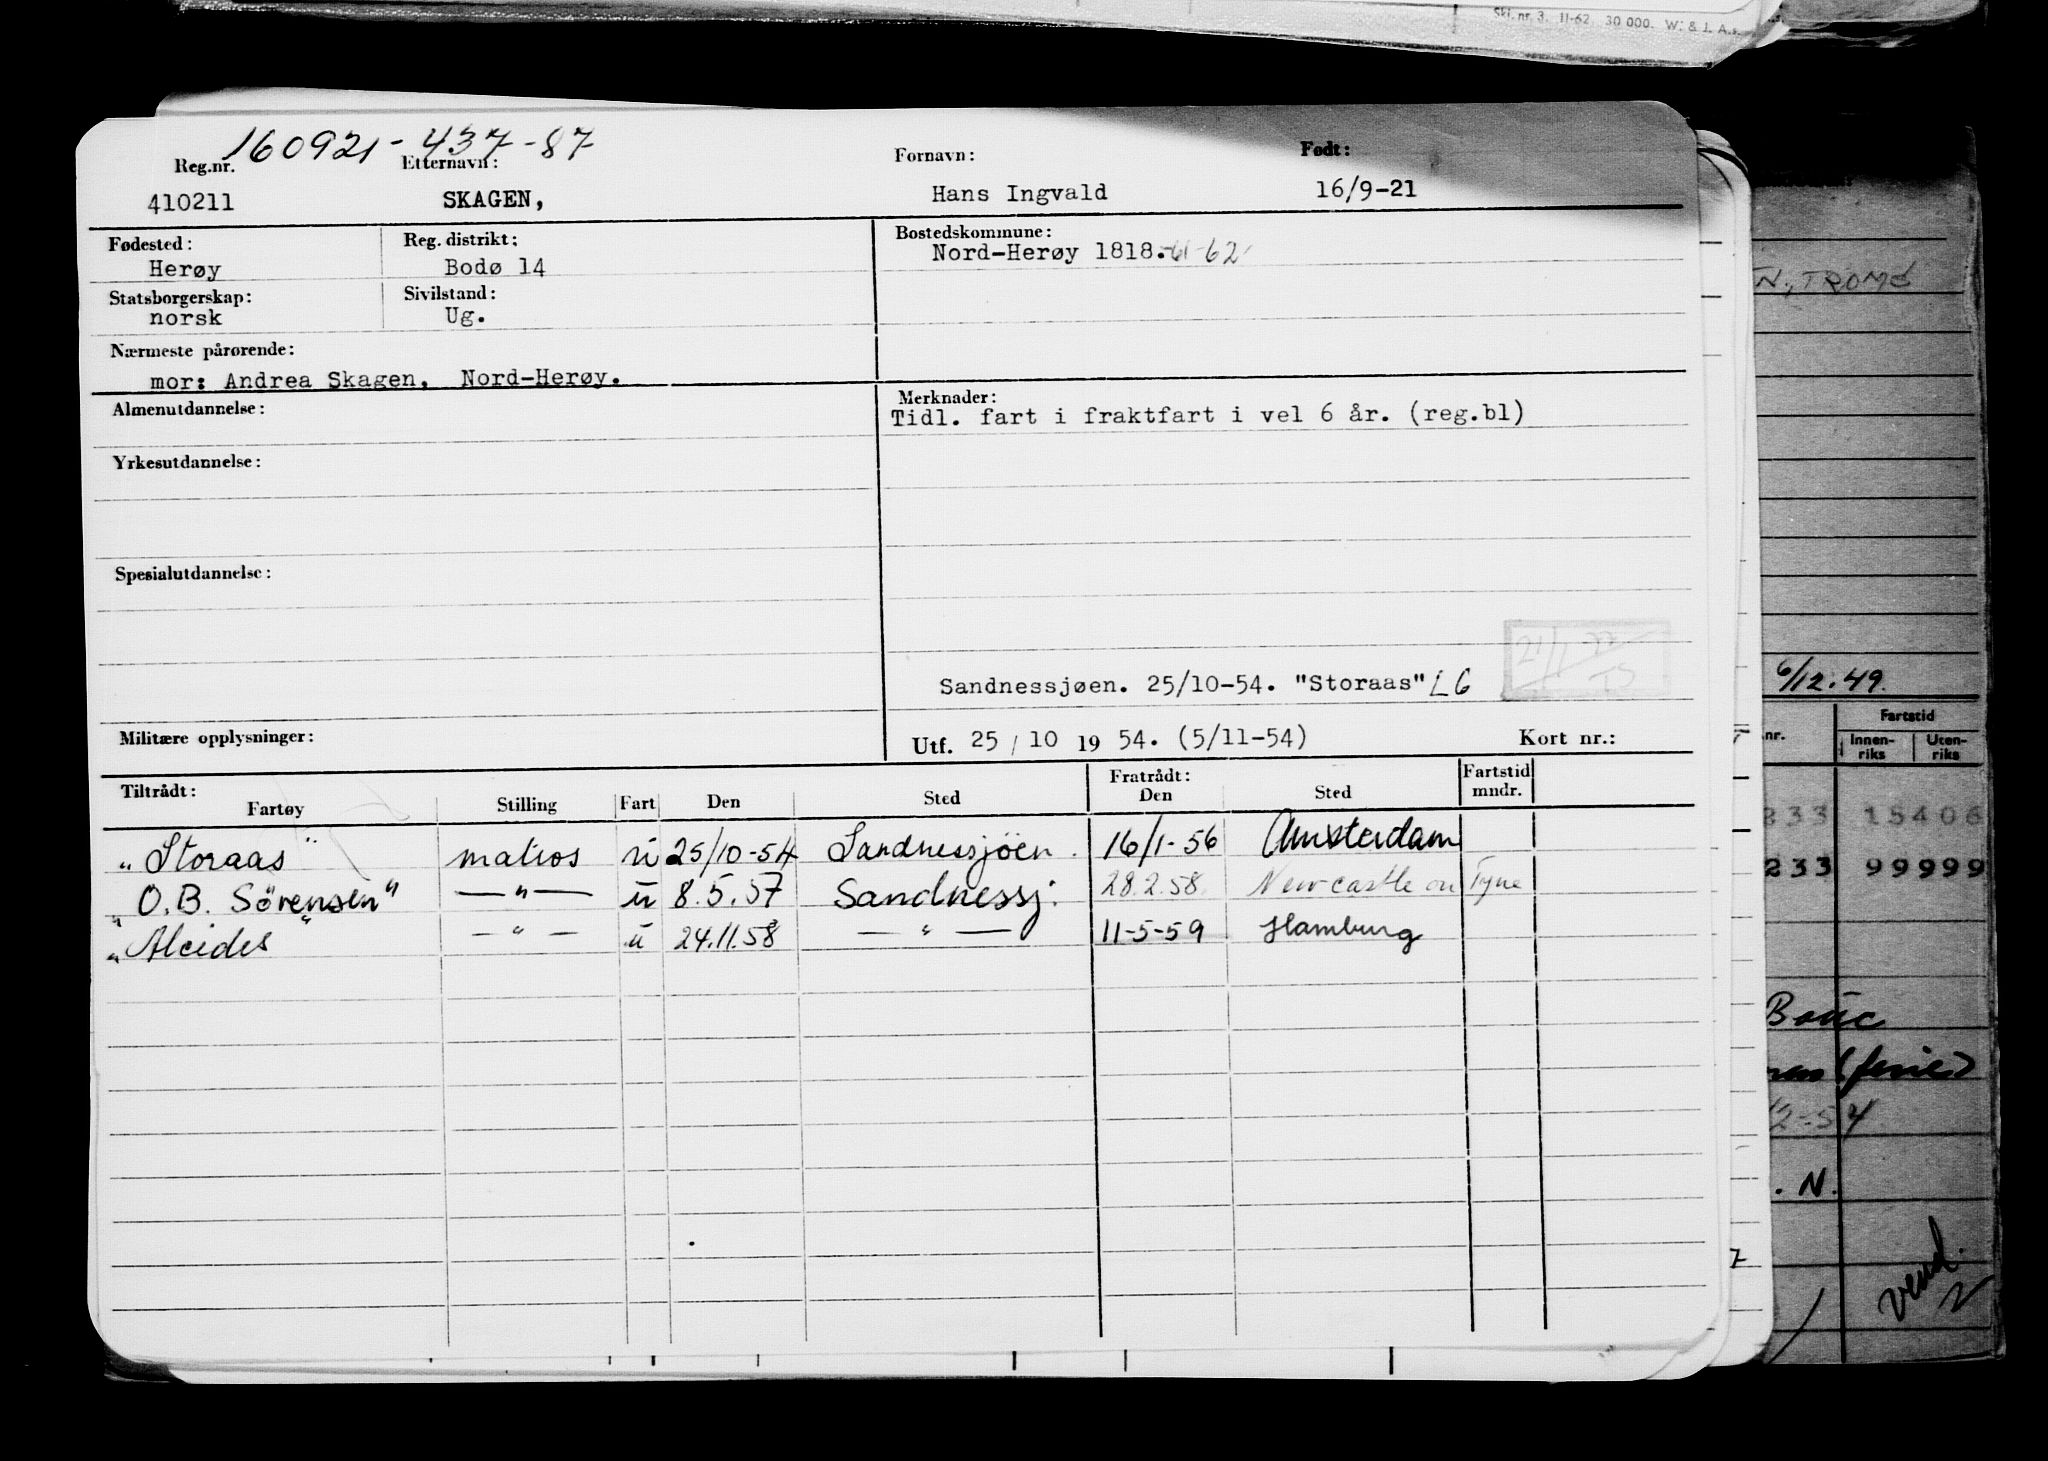 Skj. nr. 3. 11-62. 30 000. W. & J. A.s.
160921-437-87
Reg.nr. Etternavn: Fornavn: Født:
410211 SKAGEN, Hans Ingvald 16/9-21
Fødested: Reg. distrikt: Bostedskommune:
Herøy Bodø 14 Nord-Herøy 1818.-61-62
Statsborgerskap: Sivilstand:
norsk Ug.
Nærmeste pårørende:
mor: Andrea Skagen, Nord-Herøy.
Almenutdannelse: Merknader:
Tidl. fart i fraktfart i vel 6 år. (reg.bl)
Yrkesutdannelse:
Spesialutdannelse:
Sandnessjøen. 25/10-54. "Storaas" LG
Militære opplysninger: Utf. 25 / 10 19 54. (5/11-54) Kort nr.:
Tiltrådt: Fratrådt: Fartstid
Fartøy Stilling Fart Den Sted Den Sted mndr.
"Storaas" matros u 25/10-54 Sandnessjöen. 16/1-56 Amsterdam
"O.B. Sörensen" —"— u 8.5.57 Sandnessj: 28.2.58 Newcastle on Tyne
"Alcides" —"— u 24.11.58 —"— 11-5-59 Hamburg
N, TROMS
6/12.49.
Fartstid
nr. Innen-riks Uten-riks
233 15406
233 99999
(ferie)
12-54
. N.
vend.